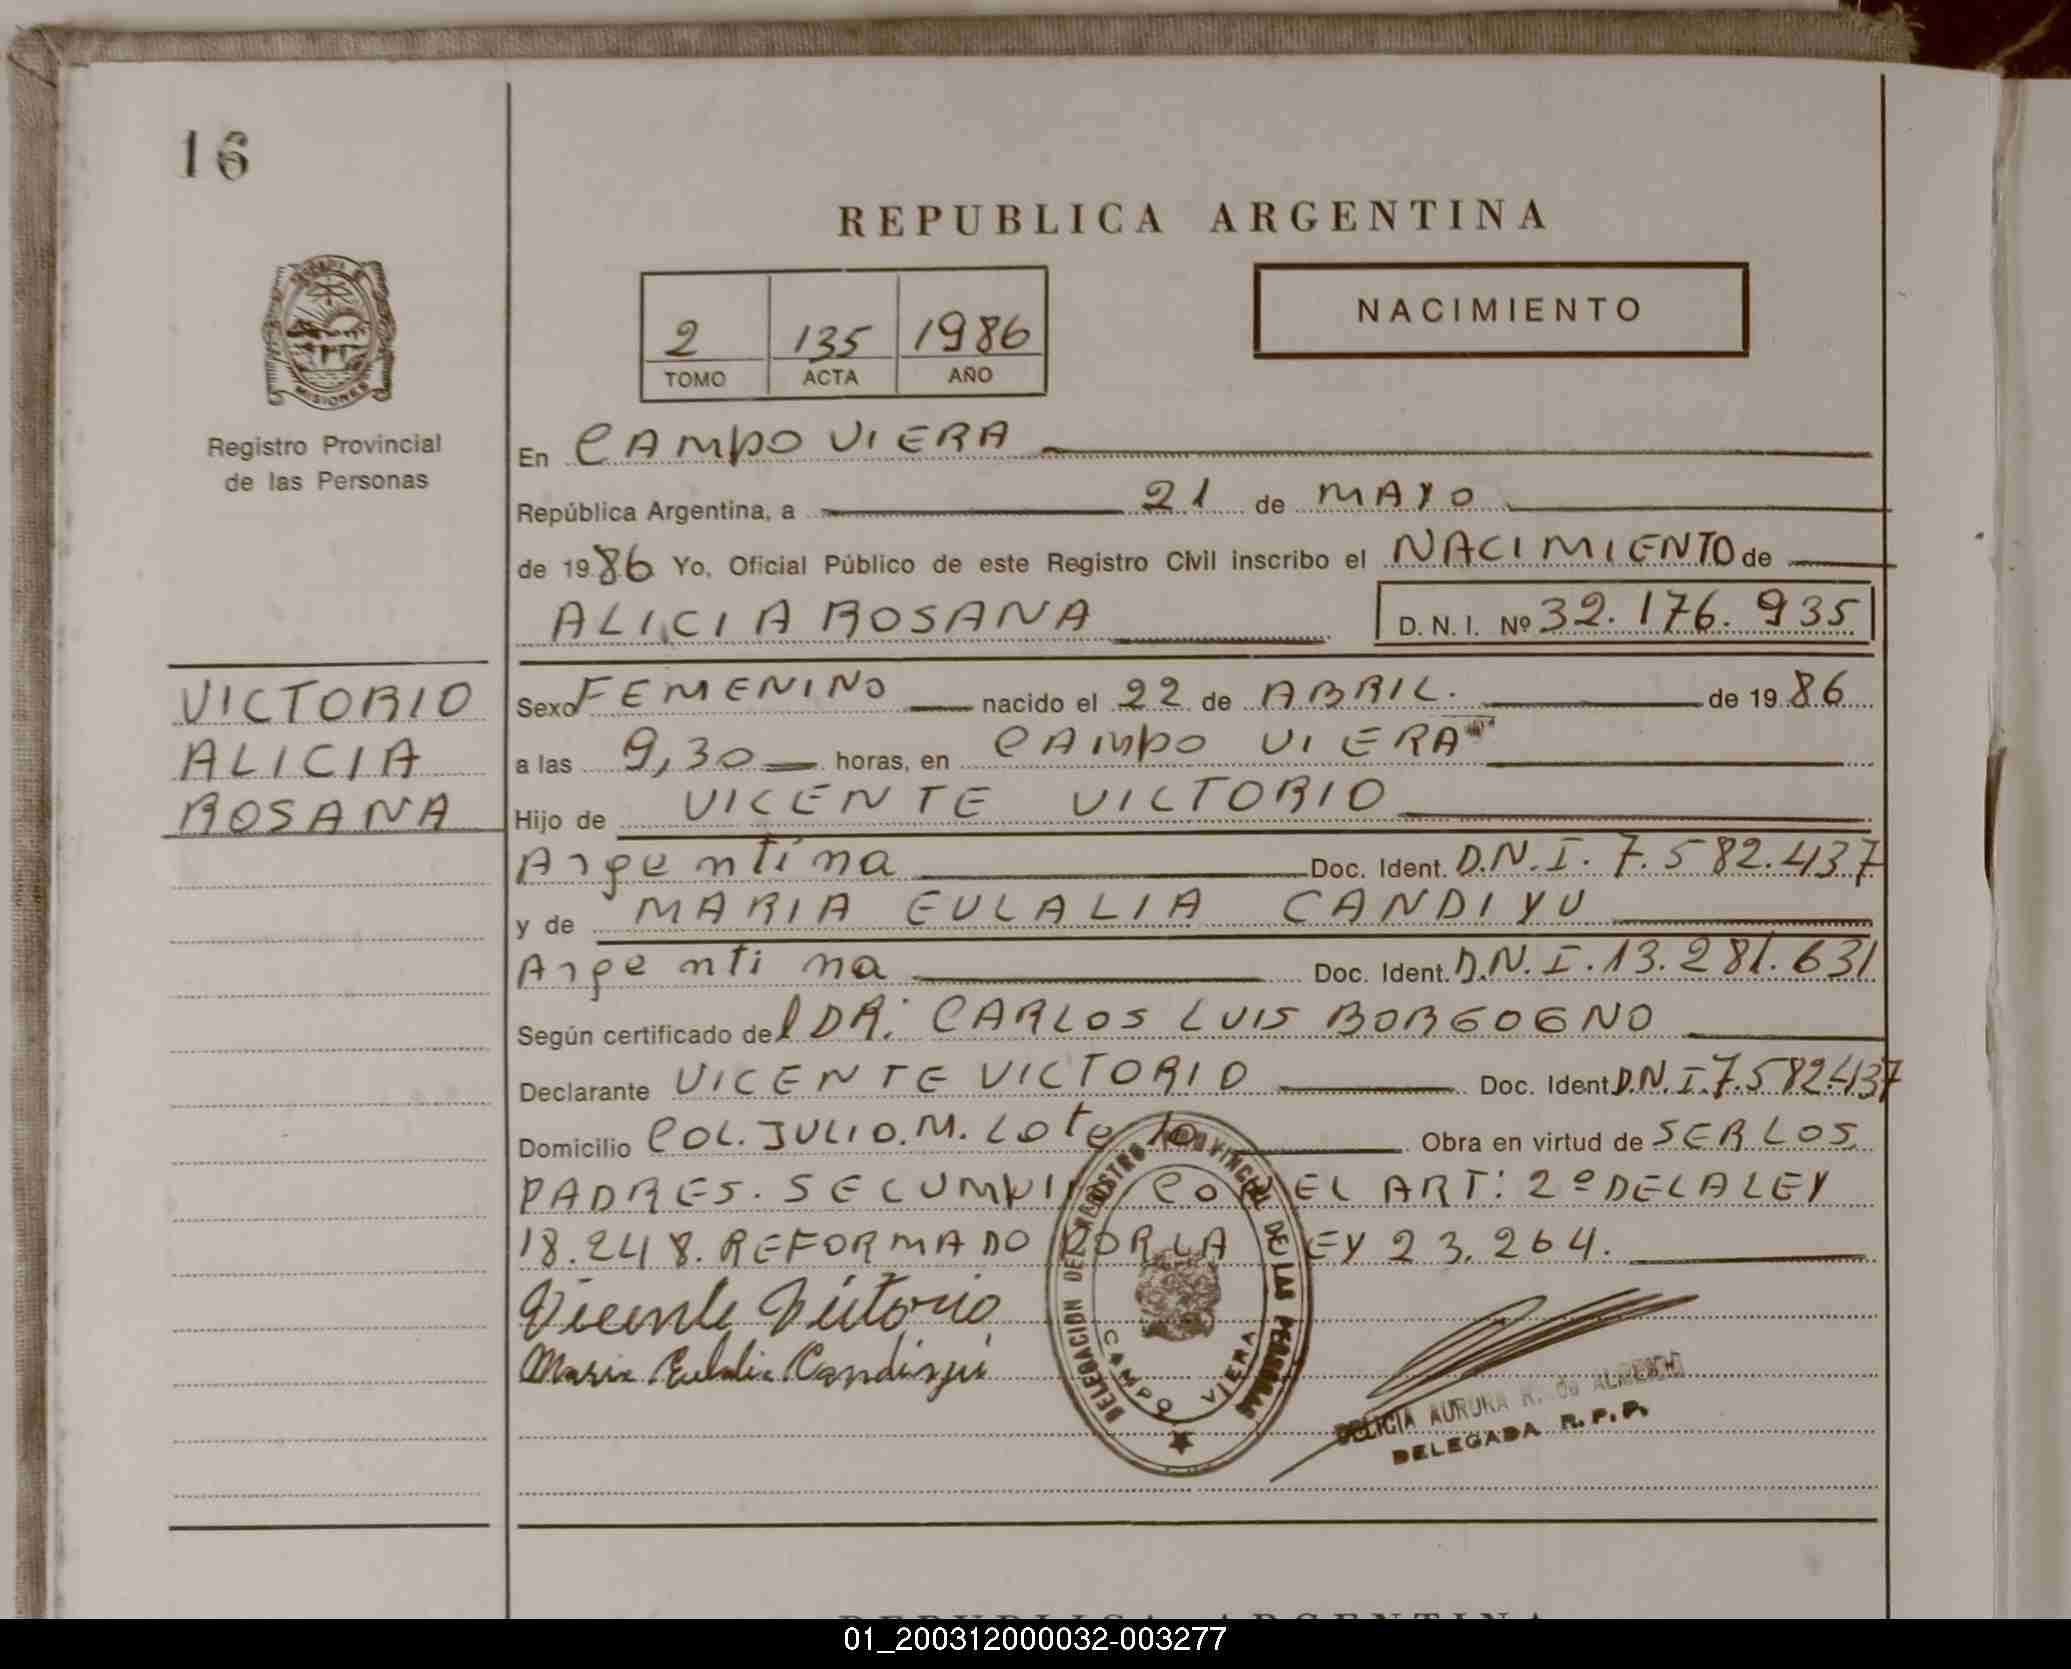 16
REPUBLICA ARGENTINA
NACIMIENTO
2 135 1986
TOMO ACTA AÑO
MISIONES
Registro Provincial
de las Personas
En CAMPO VIERA
República Argentina, a 21 de MAYO
de 1986 Yo, Oficial Público de este Registro Civil inscribo el NACIMIENTO de
ALICIA ROSANA D. N. I. Nº 32.176.935
VICTORIO
ALICIA
ROSANA
Sexo FEMENINO nacido el 22 de ABRIL. de 19 86
a las 9,30 horas, en CAMPO VIERA
Hijo de VICENTE VICTORIO
Argentina Doc. Ident. D.N.I. 7.582.437
y de MARIA EULALIA CANDIYU
Argentina Doc. Ident. D.N.I. 13.281.631
Según certificado del DR. CARLOS LUIS BORGOGNO
Declarante VICENTE VICTORIO Doc. Ident. D.N.I. 7.582.437
Domicilio COL. JULIO. M. Lote 10 Obra en virtud de SER LOS
PADRES. SE CUMPLIO CON EL ART: 2º DE LA LEY
18.248. REFORMADO POR LA LEY 23.264.
Vicente Victorio
Maria Eulalia Candiyú
DELEGACION DEL REGISTRO PROVINCIAL DE LAS PERSONAS
CAMPO VIERA
DELICIA AURORA R. de
DELEGADA R.P.P.
REPUBLICA ARGENTINA
01_200312000032-003277